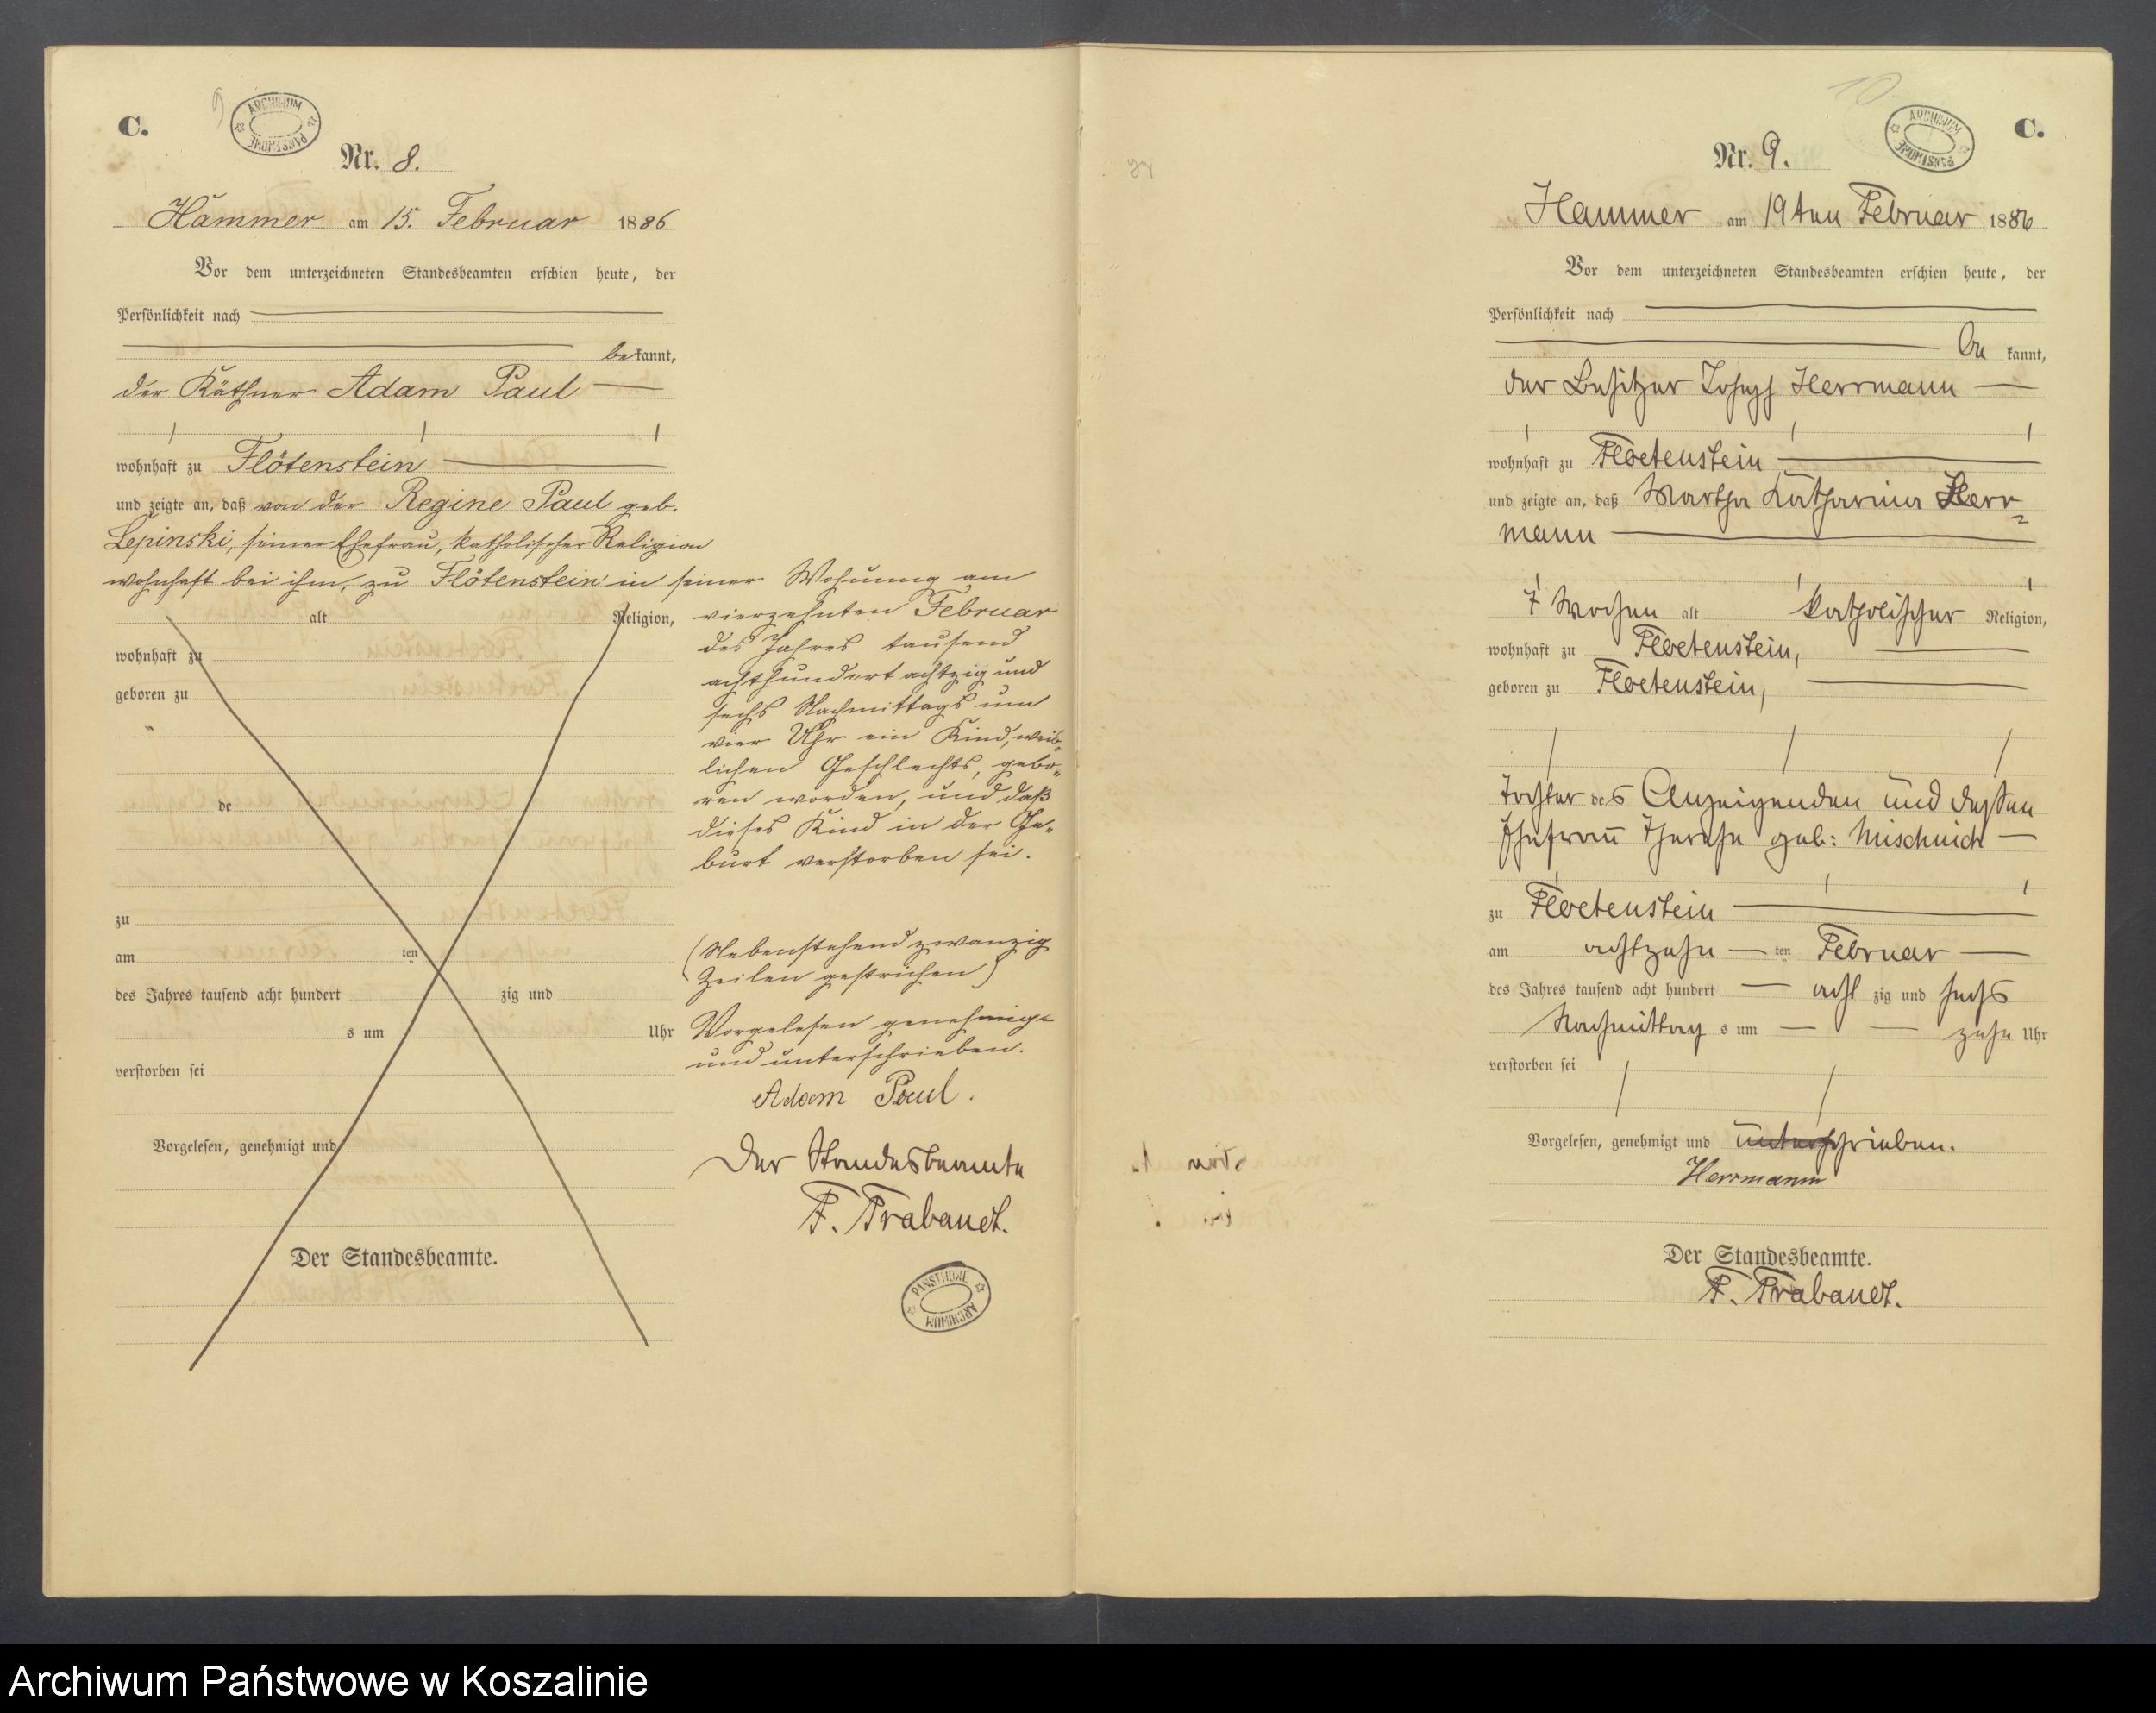 C.
9
ARCHIWUM PAŃSTWOWE
Nr. 8.
Hammer am 15. Februar 1886
Vor dem unterzeichneten Standesbeamten erschien heute, der
Persönlichkeit nach
bekannt,
der Käthner Adam Paul
wohnhaft zu Flötenstein
und zeigte an, daß von der Regine Paul geb.
Lepinski, seiner Ehefrau, katholischer Religion
wohnhaft bei ihm, zu Flötenstein in seiner Wohnung am
alt Religion,
wohnhaft zu
geboren zu
de
zu
am ten
des Jahres tausend acht hundert zig und
s um Uhr
verstorben sei
Vorgelesen, genehmigt und
Der Standesbeamte.
vierzehnten Februar
des Jahres tausend
achthundert achtzig und
sechs Nachmittags um
vier Uhr ein Kind, weib-
lichen Geschlechts, gebo-
ren worden, und daß
dieses Kind in der Ge-
burt verstorben sei.
(Nebenstehend zwanzig
Zeilen gestrichen)
Vorgelesen genehmigt
und unterschrieben.
Adam Paul.
Der Standesbeamte
F. Trabandt.
PAŃSTWOWE ARCHIWUM
10
ARCHIWUM PAŃSTWOWE
C.
Nr. 9.
Hammer am 19ten Februar 1886
Vor dem unterzeichneten Standesbeamten erschien heute, der
Persönlichkeit nach
be kannt,
der Besitzer Joseph Herrmann
wohnhaft zu Floetenstein
und zeigte an, daß Martha Katharina Herr-
mann
7 Wochen alt katholischer Religion,
wohnhaft zu Floetenstein,
geboren zu Floetenstein,
Tochter des Anzeigenden und dessen
Ehefrau Therese geb: Mischnick
zu Floetenstein
am achtzehn ten Februar
des Jahres tausend acht hundert acht zig und sechs
Nachmittag s um zehn Uhr
verstorben sei
Vorgelesen, genehmigt und unterschrieben.
Herrmann
Der Standesbeamte.
F. Trabandt.
Archiwum Państwowe w Koszalinie